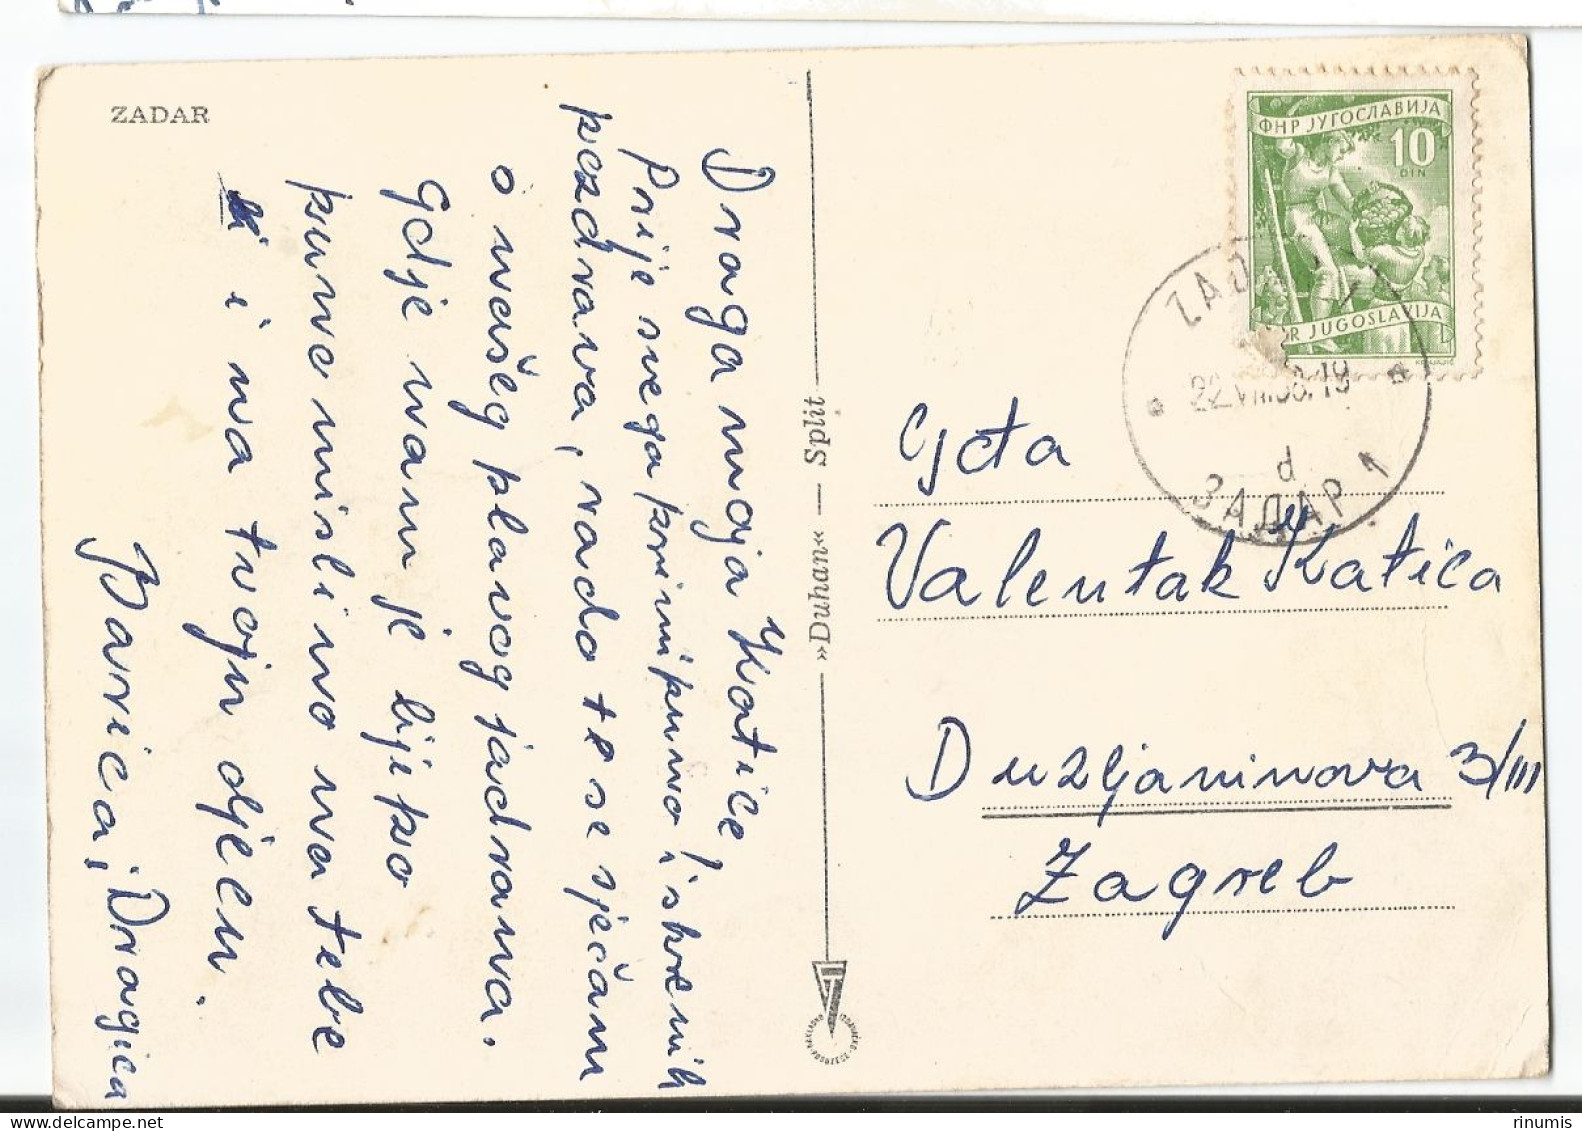 ZADAR
Draga moja Katice!
Prije svega primi puno iskrenih
pozdrava, rado te se sjećam
o našeg plavog jadrana.
Gdje nam je lijepo
puno mislimo na tebe
i na tvoju djecu.
Barica, Dragica
»Duhan« — Split
ФНР ЈУГОСЛАВИЈА
10
DIN
FNR JUGOSLAVIJA
ZADAR
22.VIII.58.19
d
ЗАДАР 1
Cjcta
Valentak Katica
Dužljaninova 3/III
Zagreb
rinumis